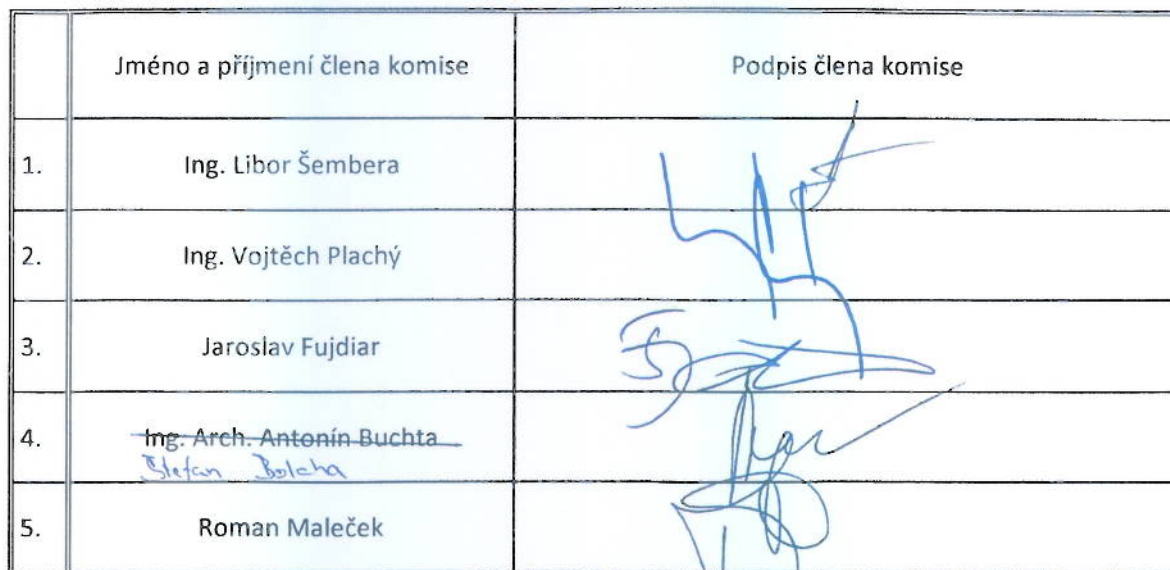 Jméno a příjmení člena komise Podpis člena komise
1. Ing. Libor Šembera
2. Ing. Vojtěch Plachý
3. Jaroslav Fujdiar
4. Ing. Arch. Antonín Buchta
Štefan Bolcha
5. Roman Maleček